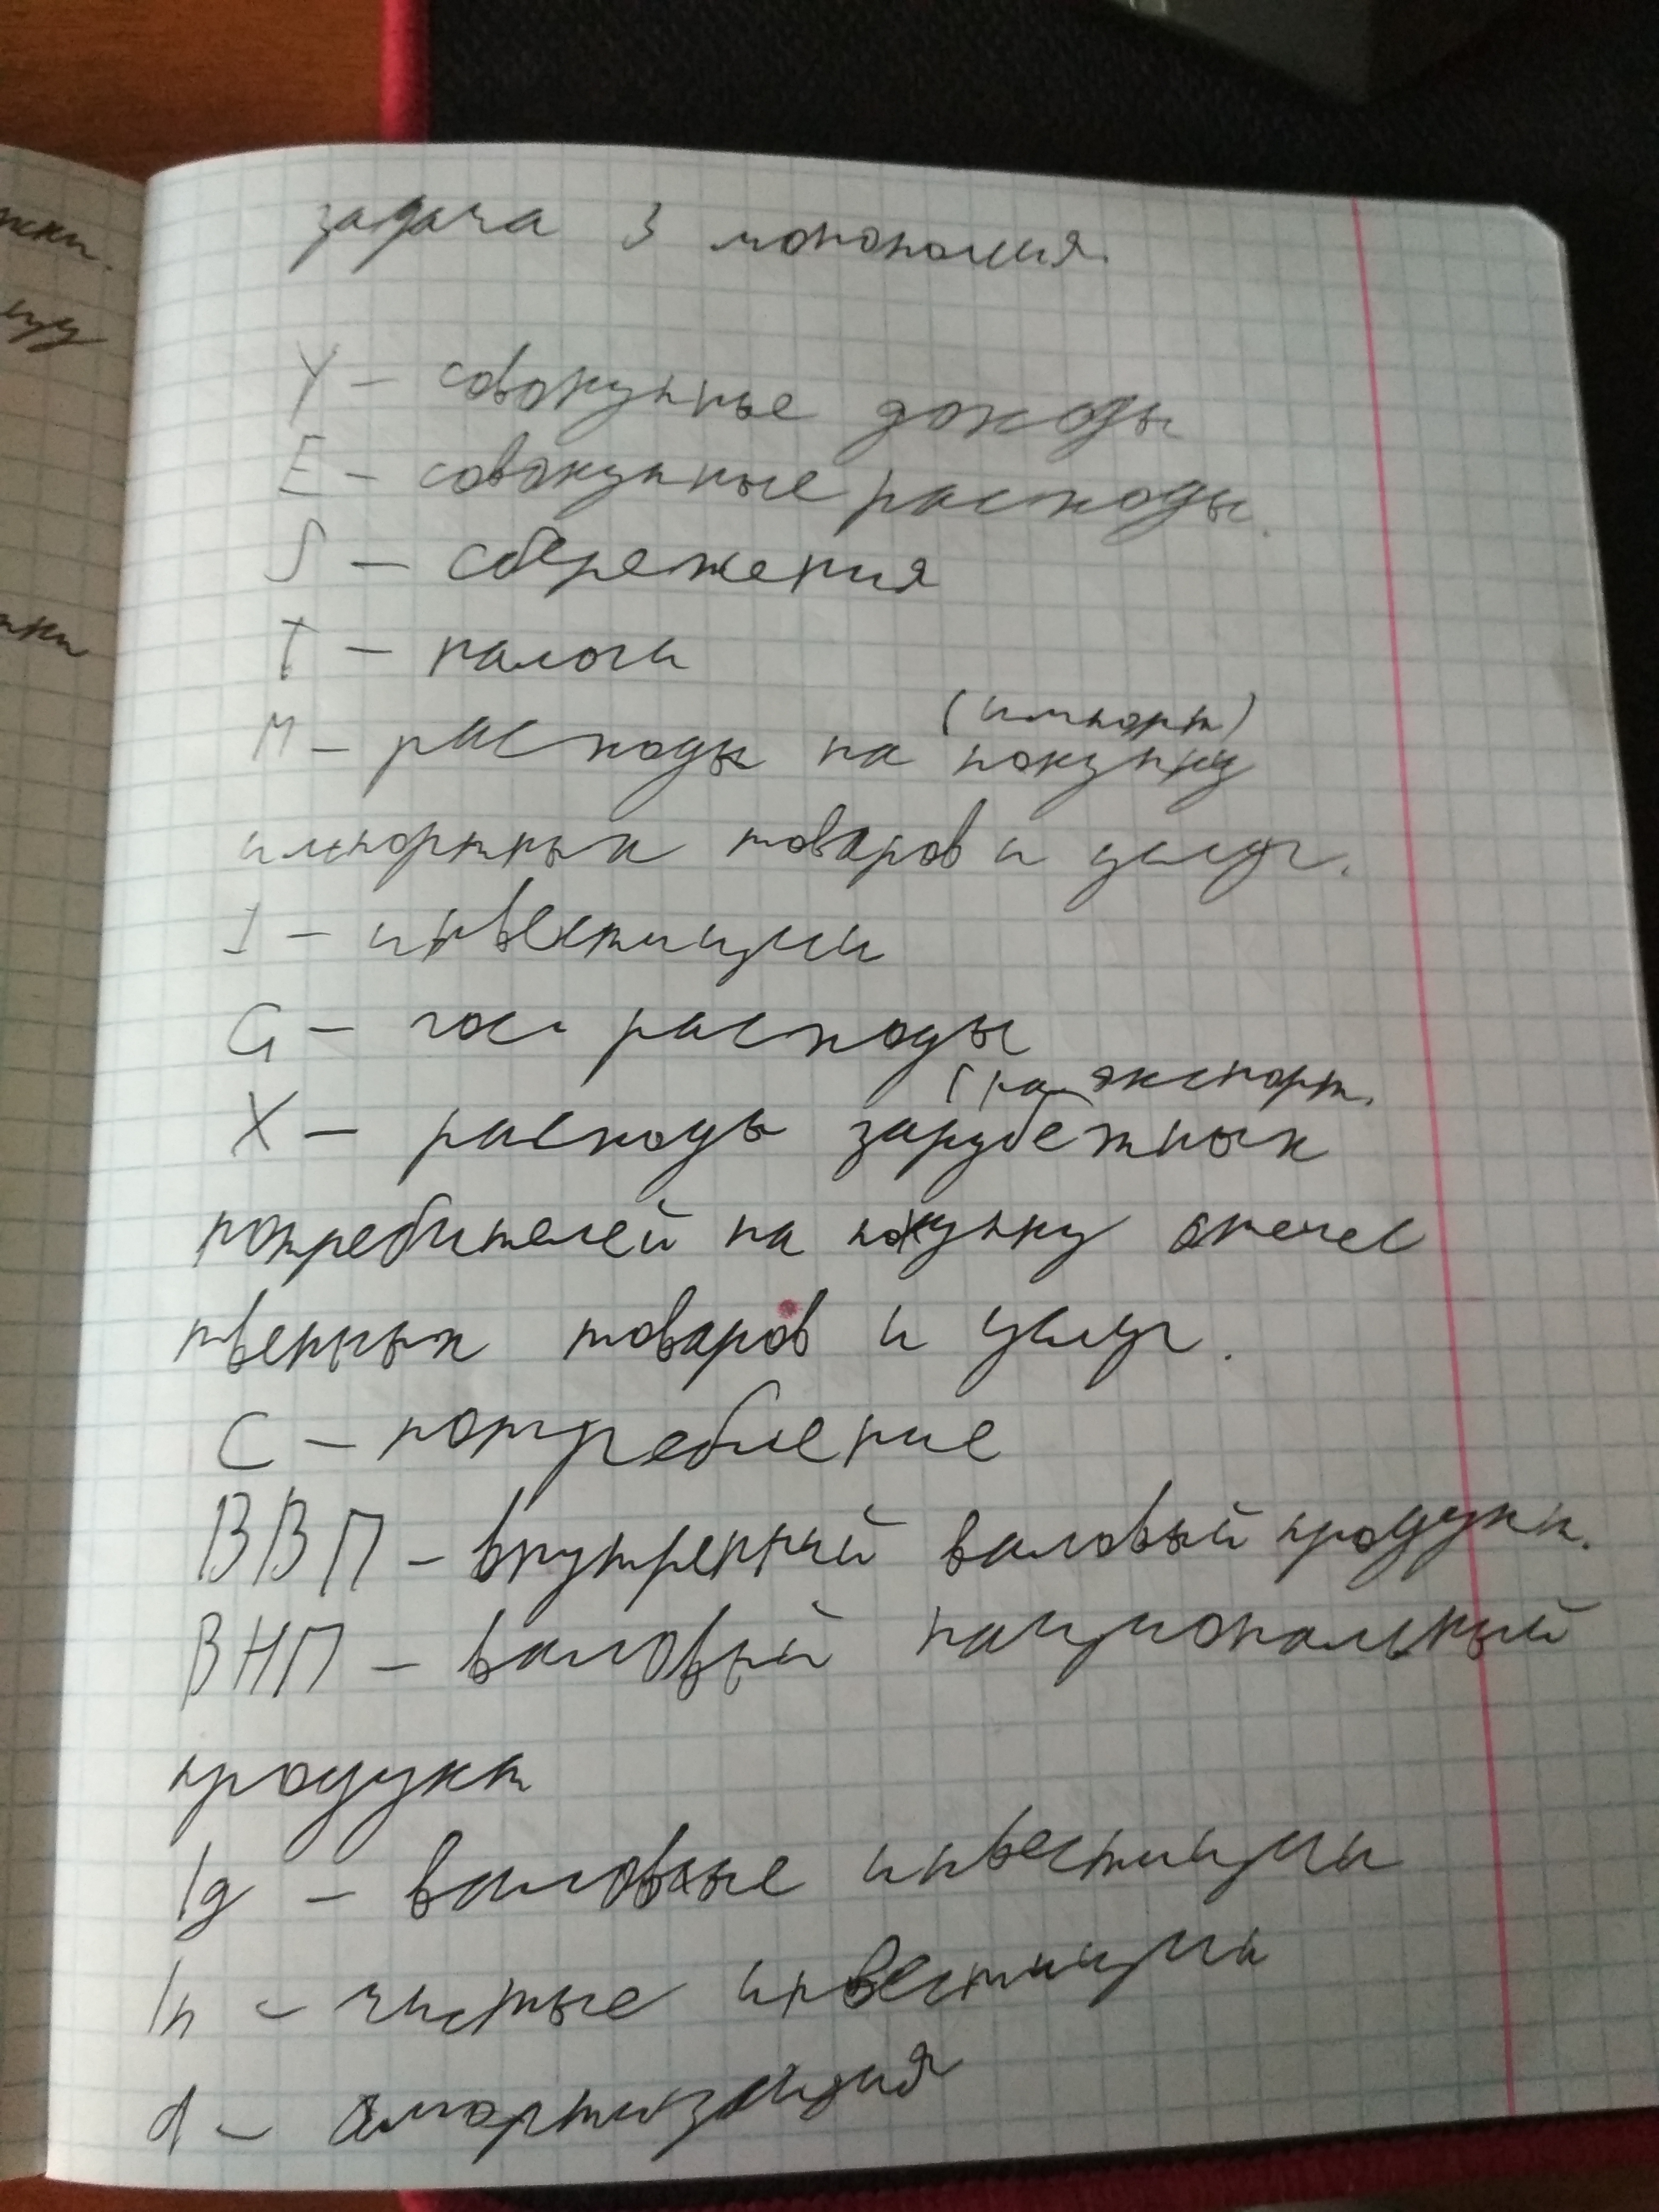 задача 3 монополия.
Y – совокупные доходы
E – совокупные расходы.
S – сбережения
T – налоги
(импорт)
M – расходы на покупку
импортных товаров и услуг.
I – инвестиции
G – гос. расходы
(на экспорт.
X – расходы зарубежных
потребителей на покупку отечес
твенных товаров и услуг.
C – потребление
ВВП – внутренний валовый продукт.
ВНП – валовый национальный
продукт
Ig – валовые инвестиции
In – чистые инвестиции
d – амортизация